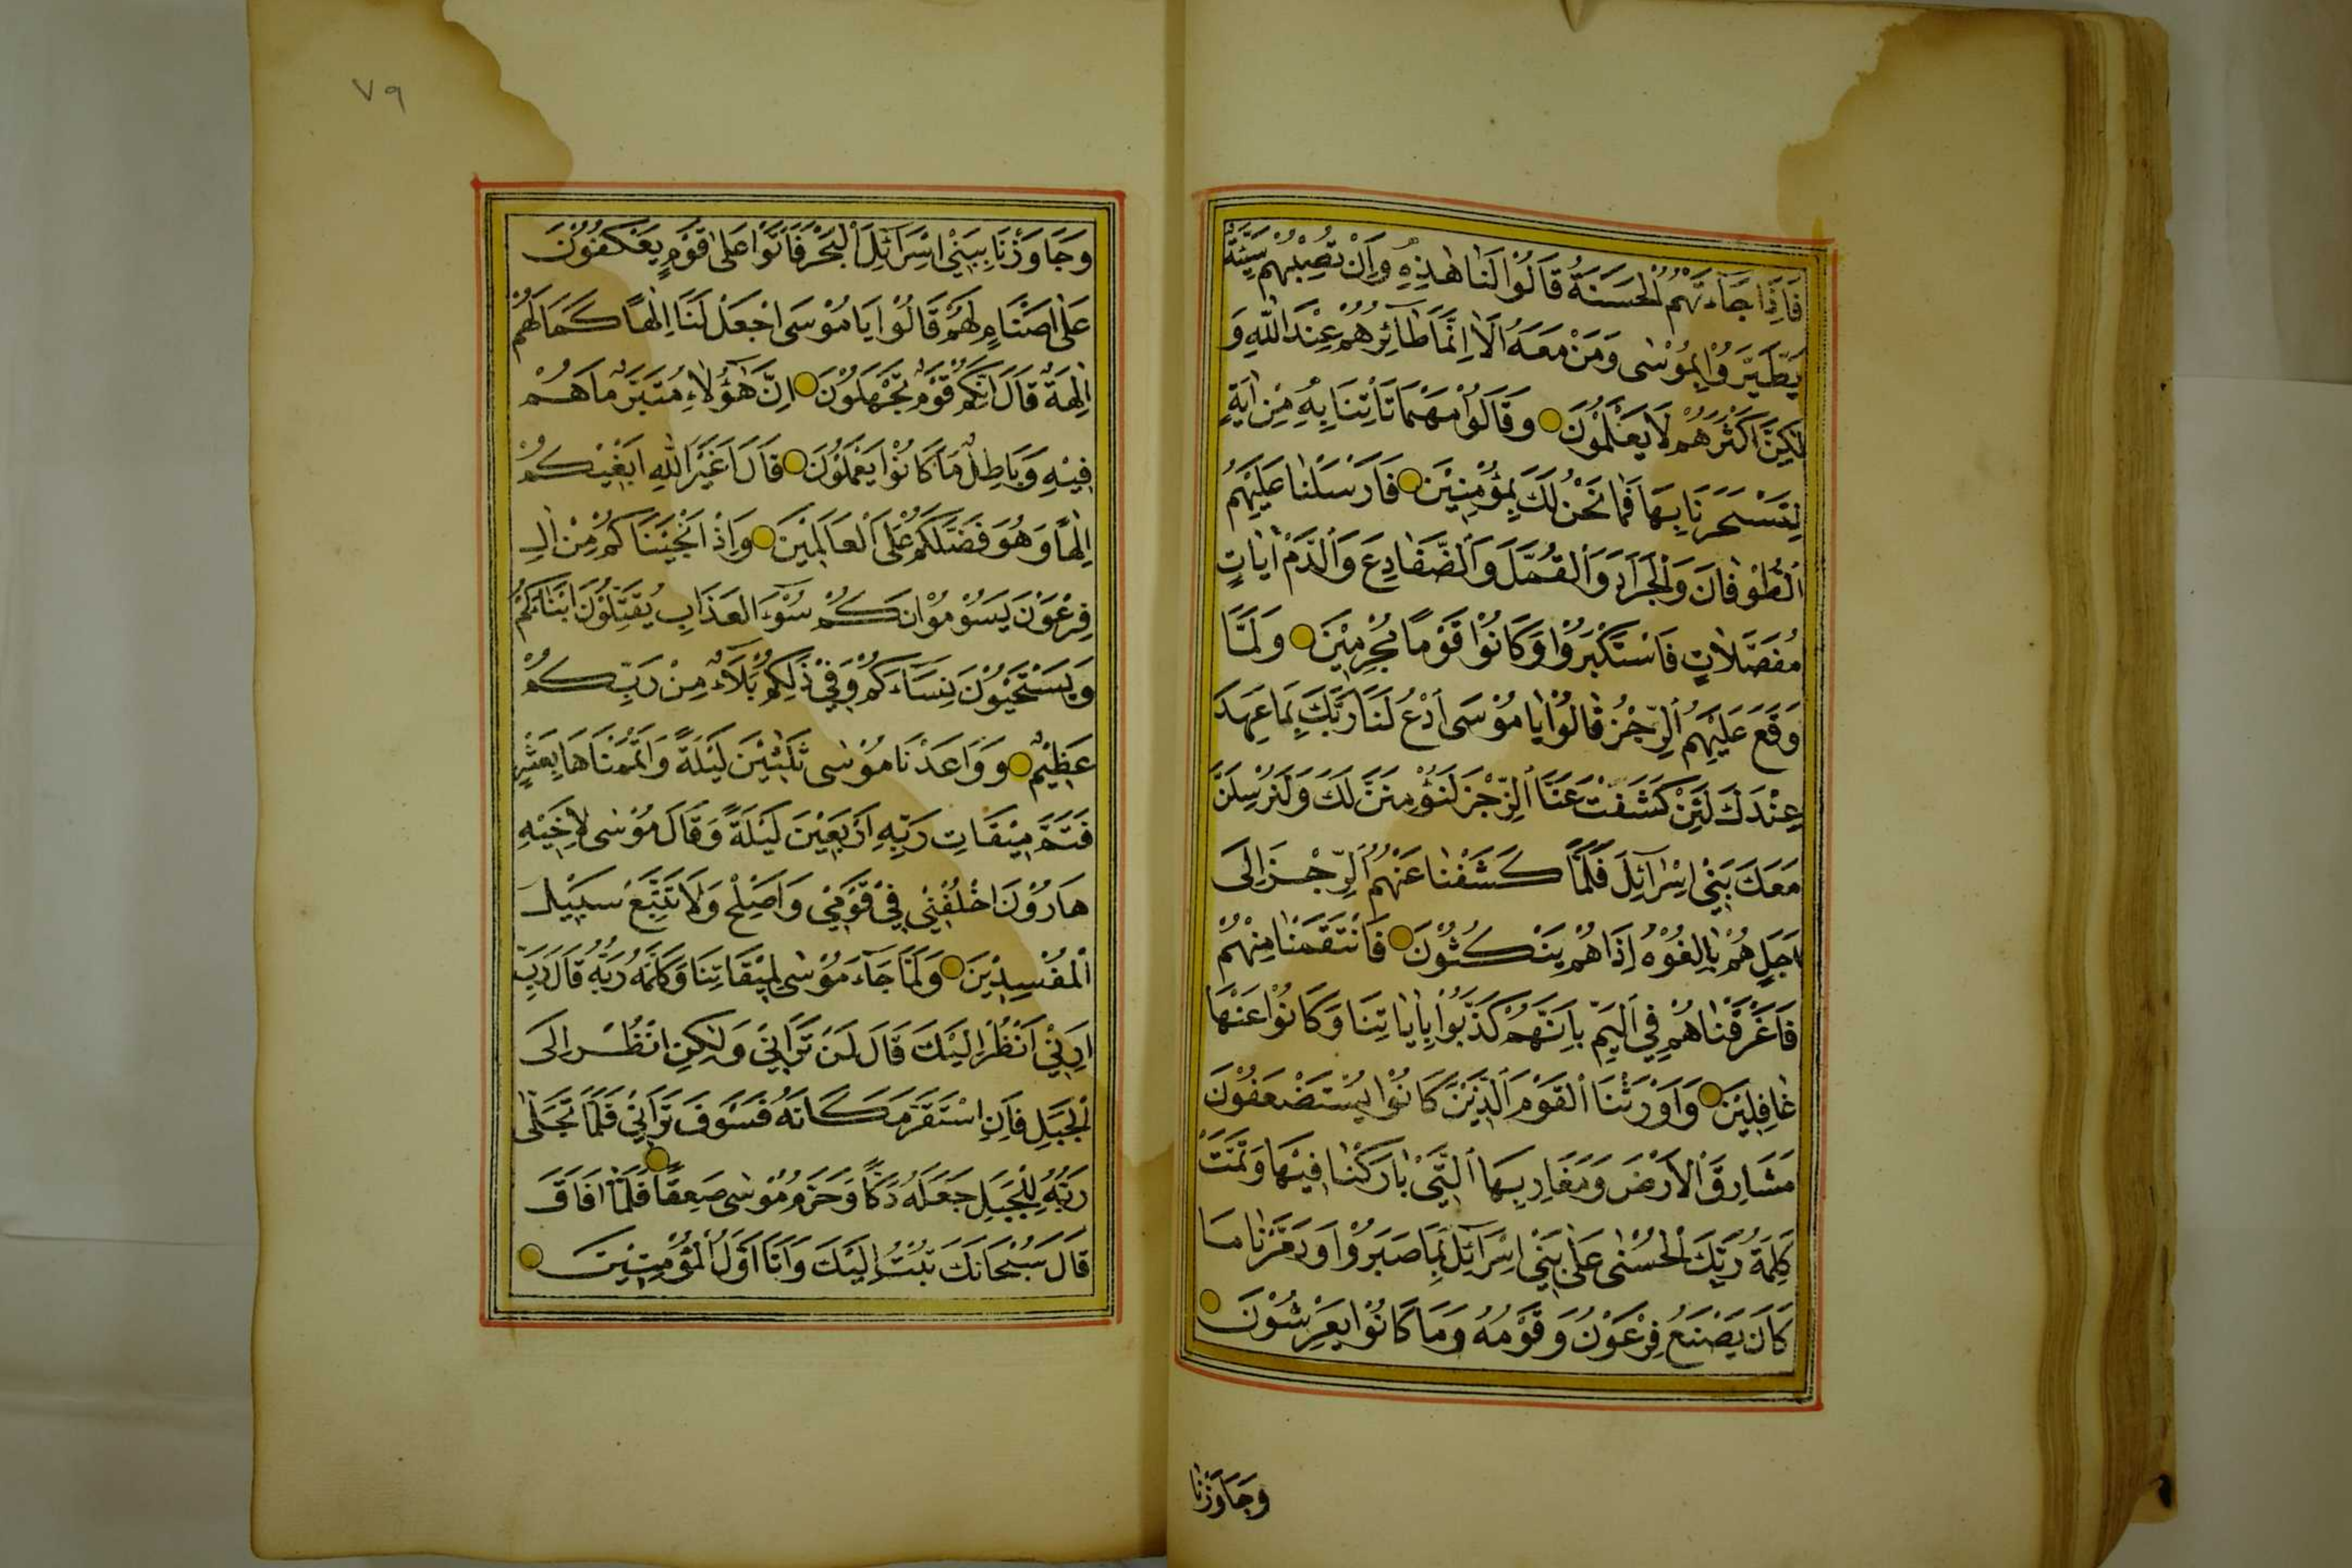 فَاِذَا جَآءَتْهُمُ الْحَسَنَةُ قَالُوْا لَنَا هٰذِهِ وَاِنْ تُصِبْهُمْ سَيِّئَةٌ
يَطَّيَّرُوْا بِمُوْسٰى وَمَنْ مَعَهُ اَلَا اِنَّمَا طَآئِرُهُمْ عِنْدَ اللّٰهِ وَ
لٰكِنَّ اَكْثَرَهُمْ لَا يَعْلَمُوْنَ وَقَالُوْا مَهْمَا تَأْتِنَا بِهِ مِنْ اٰيَةٍ
لِتَسْحَرَنَا بِهَا فَمَا نَحْنُ لَكَ بِمُؤْمِنِيْنَ فَاَرْسَلْنَا عَلَيْهِمُ
الطُّوْفَانَ وَالْجَرَادَ وَالْقُمَّلَ وَالضَّفَادِعَ وَالدَّمَ اٰيَاتٍ
مُفَصَّلَاتٍ فَاسْتَكْبَرُوْا وَكَانُوْا قَوْمًا مُجْرِمِيْنَ وَلَمَّا
وَقَعَ عَلَيْهِمُ الرِّجْزُ قَالُوْا يَا مُوْسَى ادْعُ لَنَا رَبَّكَ بِمَا عَهِدَ
عِنْدَكَ لَئِنْ كَشَفْتَ عَنَّا الرِّجْزَ لَنُؤْمِنَنَّ لَكَ وَلَنُرْسِلَنَّ
مَعَكَ بَنِيْ اِسْرَآئِلَ فَلَمَّا كَشَفْنَا عَنْهُمُ الرِّجْزَ اِلٰى
اَجَلٍ هُمْ بَالِغُوْهُ اِذَا هُمْ يَنْكُثُوْنَ فَانْتَقَمْنَا مِنْهُمْ
فَاَغْرَقْنَاهُمْ فِي الْيَمِّ بِاَنَّهُمْ كَذَّبُوْا بِاٰيَاتِنَا وَكَانُوْا عَنْهَا
غَافِلِيْنَ وَاَوْرَثْنَا الْقَوْمَ الَّذِيْنَ كَانُوْا يُسْتَضْعَفُوْنَ
مَشَارِقَ الْاَرْضِ وَمَغَارِبَهَا الَّتِيْ بَارَكْنَا فِيْهَا وَتَمَّتْ
كَلِمَةُ رَبِّكَ الْحُسْنٰى عَلٰى بَنِيْ اِسْرَآئِلَ بِمَا صَبَرُوْا وَدَمَّرْنَا مَا
كَانَ يَصْنَعُ فِرْعَوْنُ وَقَوْمُهُ وَمَا كَانُوْا يَعْرِشُوْنَ
وَجَاوَزْنَا
٧٩
وَجَاوَزْنَا بِبَنِيْ اِسْرَآئِلَ الْبَحْرَ فَاَتَوْا عَلٰى قَوْمٍ يَعْكُفُوْنَ
عَلٰى اَصْنَامٍ لَهُمْ قَالُوْا يَا مُوْسَى اجْعَلْ لَنَا اِلٰهًا كَمَا لَهُمْ
اٰلِهَةٌ قَالَ اِنَّكُمْ قَوْمٌ تَجْهَلُوْنَ اِنَّ هٰؤُلَاءِ مُتَبَّرٌ مَا هُمْ
فِيْهِ وَبَاطِلٌ مَا كَانُوْا يَعْمَلُوْنَ قَالَ اَغَيْرَ اللّٰهِ اَبْغِيْكُمْ
اِلٰهًا وَهُوَ فَضَّلَكُمْ عَلَى الْعَالَمِيْنَ وَاِذْ اَنْجَيْنَاكُمْ مِنْ اٰلِ
فِرْعَوْنَ يَسُوْمُوْنَكُمْ سُوْٓءَ الْعَذَابِ يُقَتِّلُوْنَ اَبْنَاءَكُمْ
وَيَسْتَحْيُوْنَ نِسَآءَكُمْ وَفِيْ ذٰلِكُمْ بَلَآءٌ مِنْ رَبِّكُمْ
عَظِيْمٌ وَوَاعَدْنَا مُوْسٰى ثَلٰثِيْنَ لَيْلَةً وَاَتْمَمْنَاهَا بِعَشْرٍ
فَتَمَّ مِيْقَاتُ رَبِّهِ اَرْبَعِيْنَ لَيْلَةً وَقَالَ مُوْسٰى لِاَخِيْهِ
هَارُوْنَ اخْلُفْنِيْ فِيْ قَوْمِيْ وَاَصْلِحْ وَلَا تَتَّبِعْ سَبِيْلَ
الْمُفْسِدِيْنَ وَلَمَّا جَآءَ مُوْسٰى لِمِيْقَاتِنَا وَكَلَّمَهُ رَبُّهُ قَالَ رَبِّ
اَرِنِيْ اَنْظُرْ اِلَيْكَ قَالَ لَنْ تَرَانِيْ وَلٰكِنِ انْظُرْ اِلَى
الْجَبَلِ فَاِنِ اسْتَقَرَّ مَكَانَهُ فَسَوْفَ تَرَانِيْ فَلَمَّا تَجَلّٰى
رَبُّهُ لِلْجَبَلِ جَعَلَهُ دَكًّا وَخَرَّ مُوْسٰى صَعِقًا فَلَمَّا اَفَاقَ
قَالَ سُبْحَانَكَ تُبْتُ اِلَيْكَ وَاَنَا اَوَّلُ الْمُؤْمِنِيْنَ